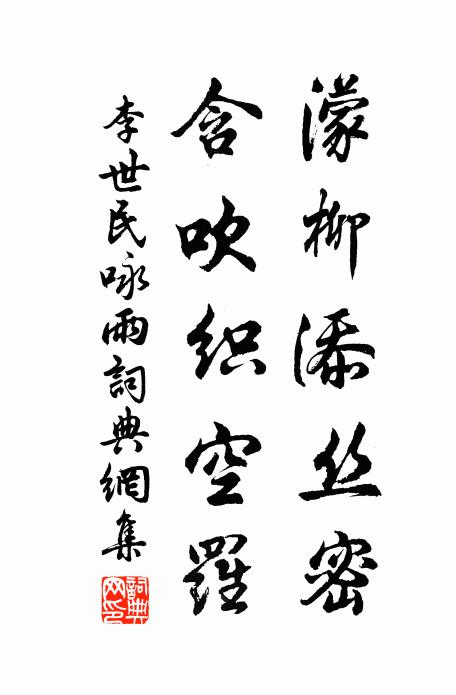 濛柳添丝密
含吹织空羅
李世民咏雨詞典網集
詞典网印